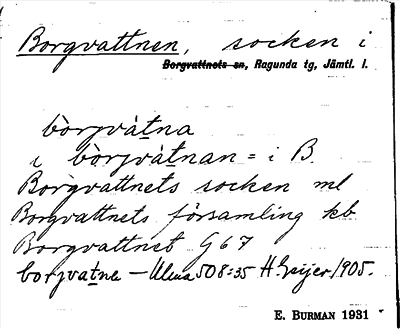 Borgvattnen, socken i
Borgvattnets sn, Ragunda tg, Jämtl. l.
bòrjvàtna
i bòrjvàtnan = i B.
Borgvattnets socken ml
Borgvattnets församling kb
Borgvattnet G 67
borjvatne – Ulma 508:35 H. Geijer 1905.
E. BURMAN 1931